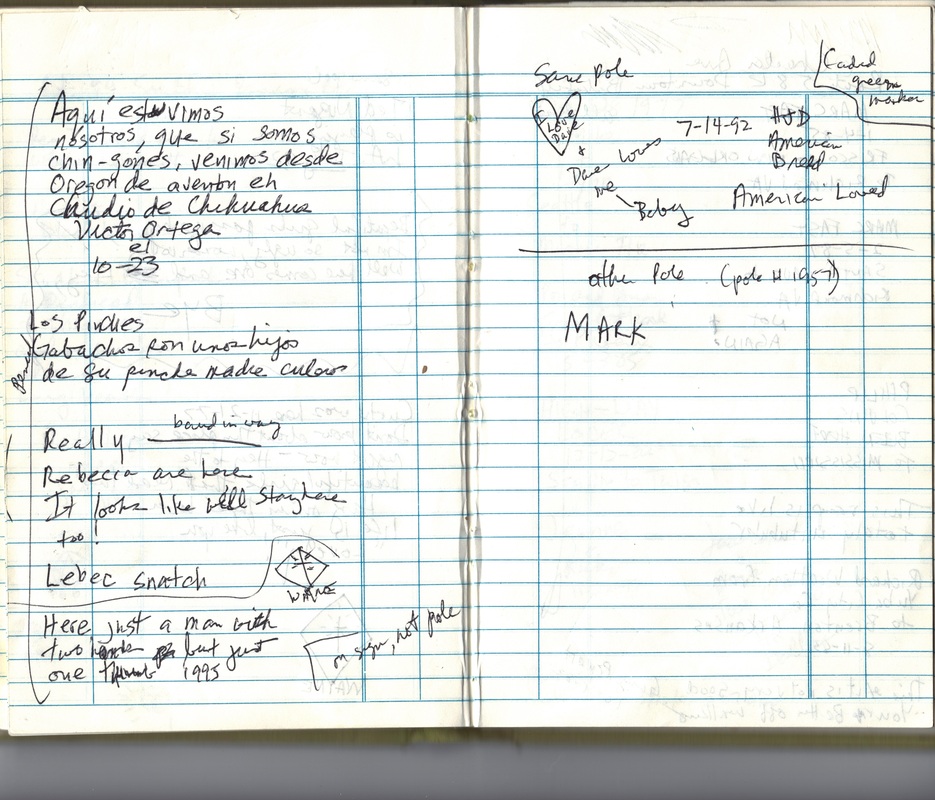 Aquí estuvimos
nosotros, que si somos
chin-gónes, venimos desde
Oregon de aventon en
Claudio de Chihuahua
Victor Ortega
el
10-23
Los Pinches
Gabachos son unos hijos
de su pinche madre culeros
Really
Rebecca are here
It looks like we'll stay here
too!
Lebec snatch
Here just a man with
two but just
one 1993
on sign, not pole
Same pole
Faded
green
marker
I
Love
Dave
7-14-92
Dave loves
me
Baby
American
Bread
American Loved
other Pole (pole # 1957)
MARK